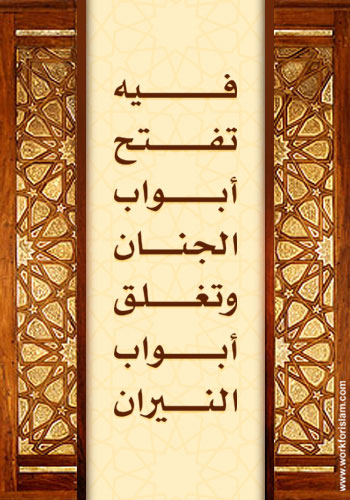 فيه
تفتح
أبواب
الجنان
وتغلق
أبواب
النيران
www.workforislam.com